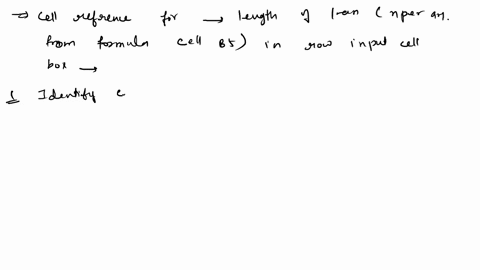 ⇒ Cell reference for → length of loan (nper arg.
from formula cell B5) in row input cell
box →
1 Identify c